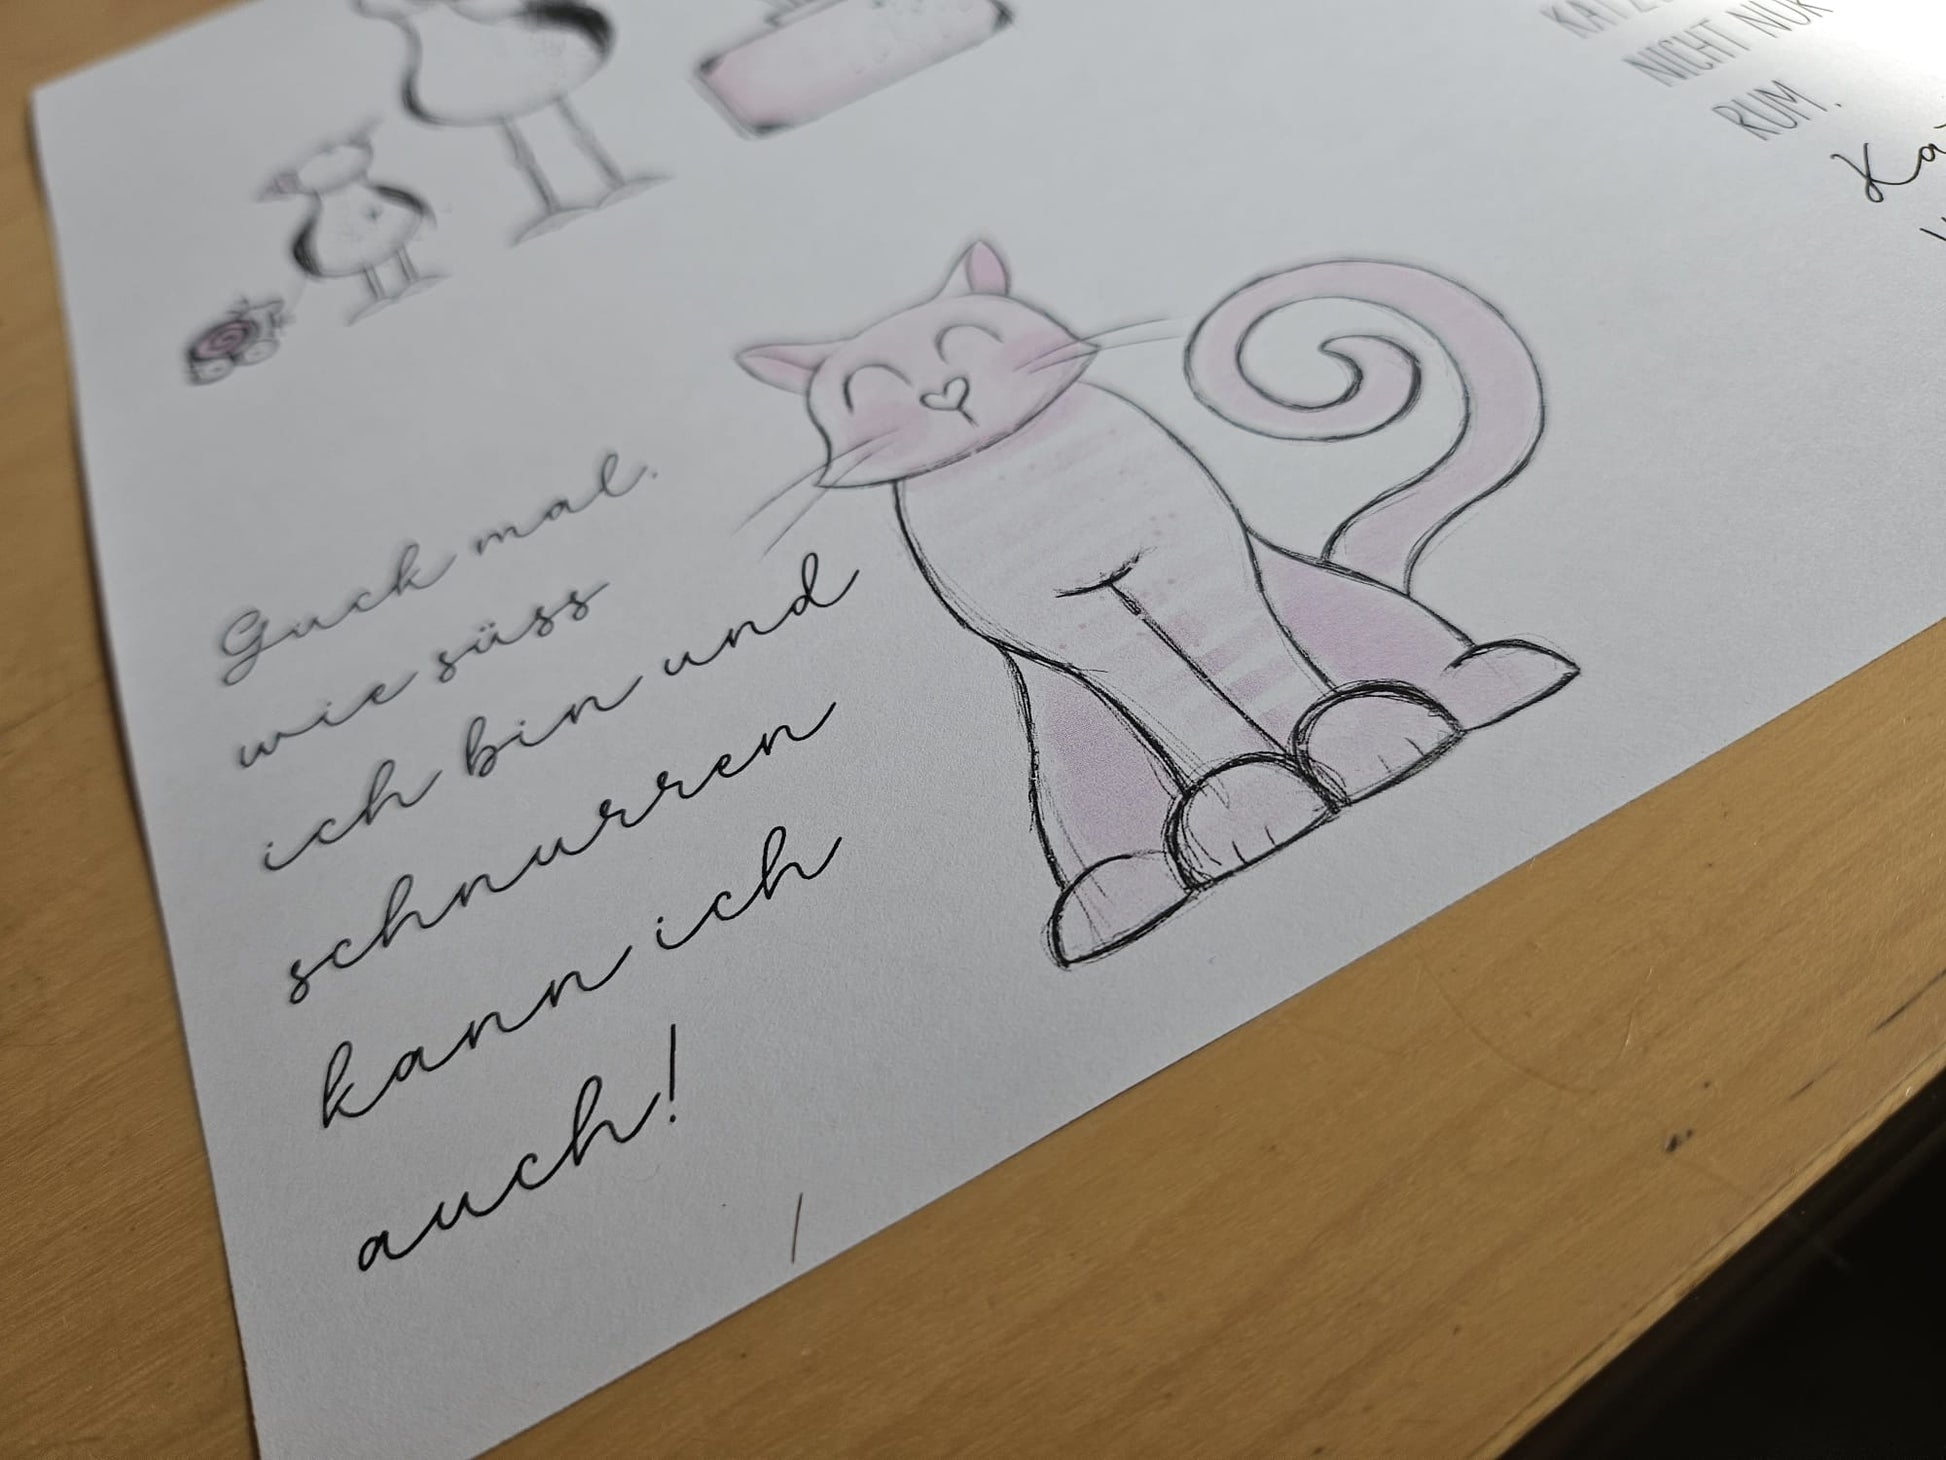 NICHT NUR
RUM.
Guck mal.
wie süss
ich bin und
schnurren
kann ich
auch!